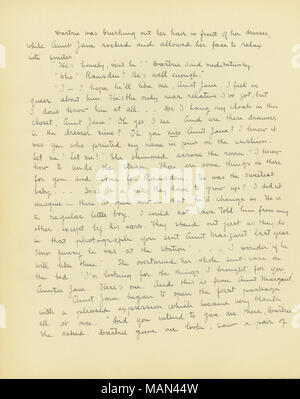 Dartrie was brushing out her hair in front of her dresser,
while Aunt Jane rocked and allowed her face to relax
into smiles.
"He's lonely, isn't he?" Dartrie said meditatively.
"Who? Ramsden? He's well enough."
"I - I hope he'll like me, Aunt Jane. I feel so
queer about him. He's the only near relative I've got, but
I don't know him at all. Do I hang my cloak in this
closet, Aunt Jane? Oh yes I see. And are these drawers
in the dresser mine? Oh you nice Aunt Jane! I know it
was you who printed my name in pins on the cushion.
Let me! Let me!" She skimmed across the room. "I know
how to undo the straps. There are some things in here
for you and some for Ramsden. He was the sweetest
baby. Isn't it a pity they have to grow up? I didn't
imagine - there it's open now - that he'd change so. He is
a regular little boy. I could not have told him from any
other, except by his ears. They stand out just as they do
in that photograph you sent Aunt Margaret last year.
How funny he was at the station! I wonder if he
will like these." She overturned her whole suit-case on
the bed. "I'm looking for the things I brought for you,
Auntie Jane. Here's one. And this is from Aunt Margaret."
Aunt Jane began to open the first package
with a pleased expression which became very blank
all at once. "Did you intend to give me these, Dartrie?"
she asked. Dartrie gave one look, saw a pair of
alamy
Image ID: MAN44W
www.alamy.com